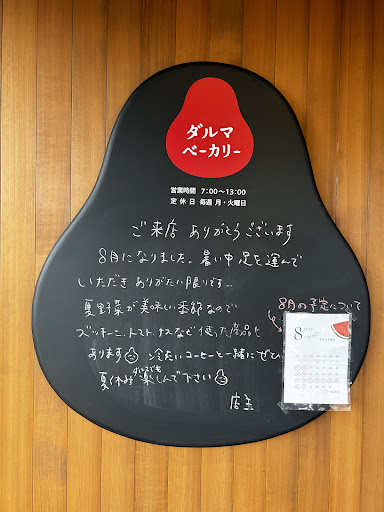 ダルマ
ベーカリー
営業時間 7:00〜13:00
定休日 毎週 月・火曜日
ご来店 ありがとうございます
8月になりました。暑い中足を運んで
いただき ありがたい限りです…
夏野菜が美味しい季節なので
ズッキーニ、トマト、ナスなど使った商品も
あります 冷たいコーヒーと一緒にぜひ
夏休み 楽しんで下さい
店主
8月の予定について
8